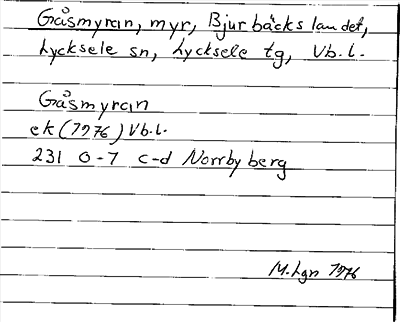 Gåsmyran, myr, Bjurbäckslandet,
Lycksele sn, Lycksele tg, Vb.l.
Gåsmyran
ek (1976) Vb.l.
231 0-7 c-d Norrbyberg
M.Lgn 1976